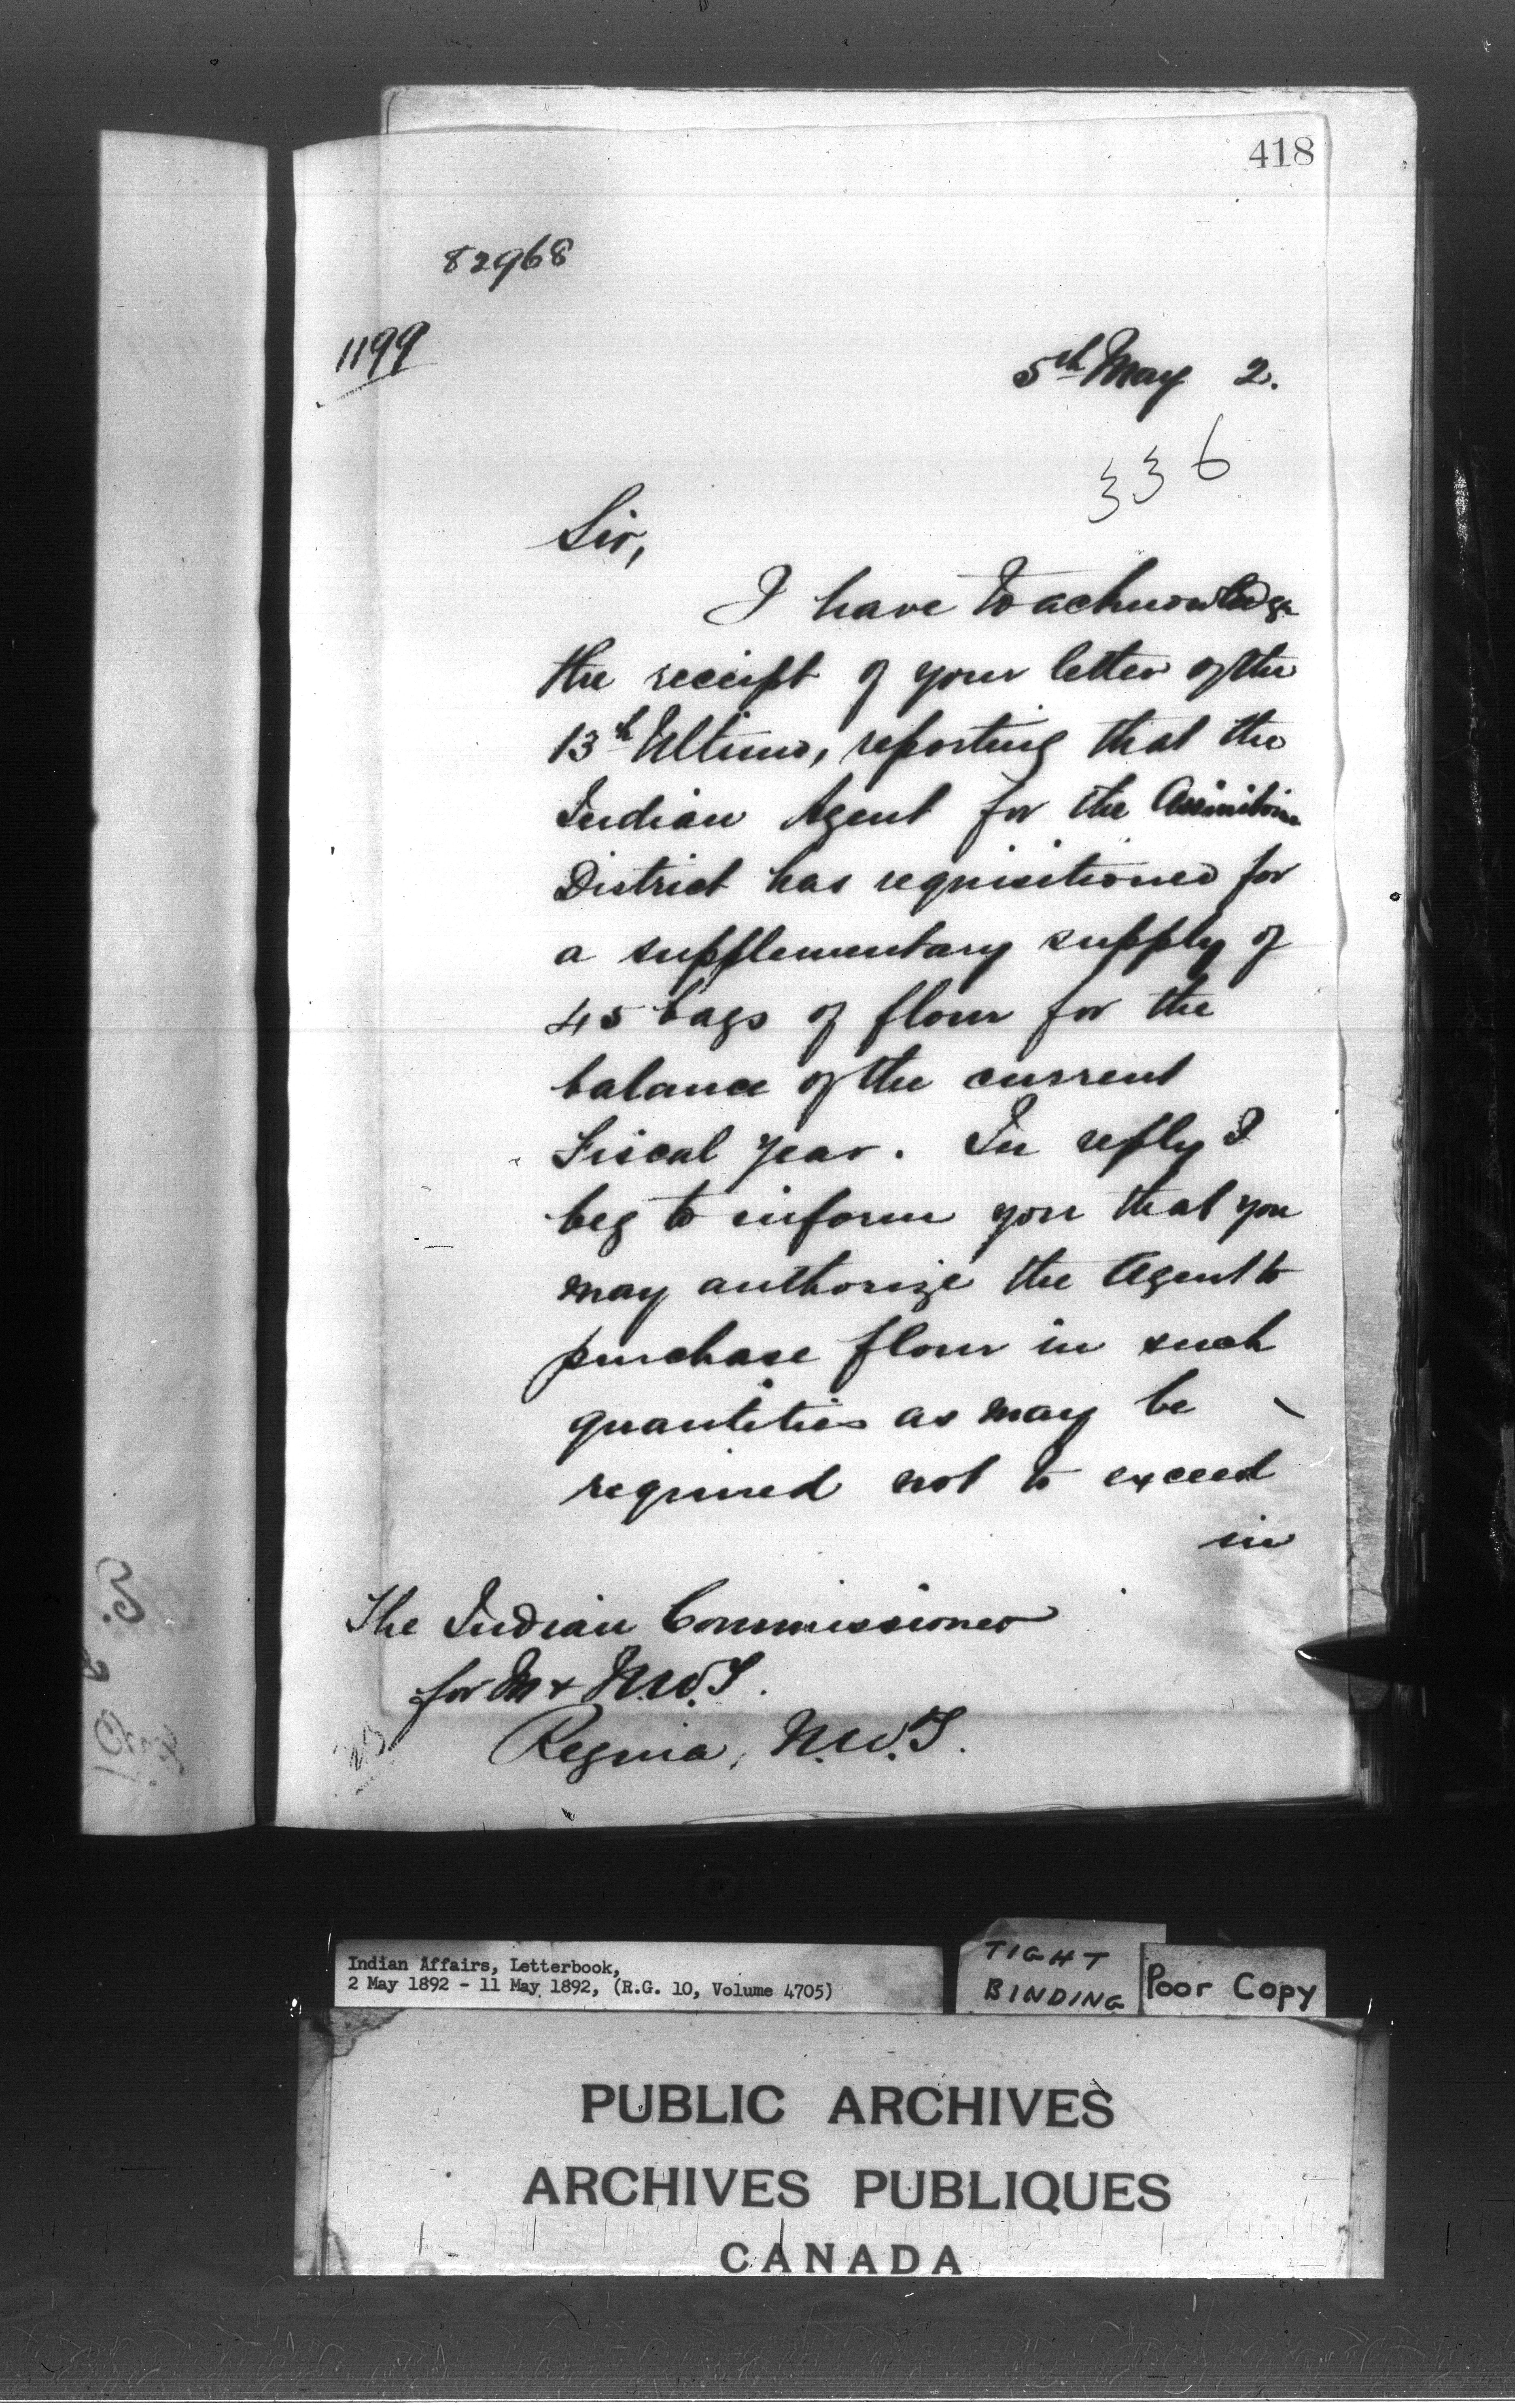 418
82968
1199
5th May 2.
336
Sir,
I have to acknowledge
the receipt of your letter of the
13th Ultimo, reporting that the
Indian Agent for the Assiniboine
District has requisitioned for
a supplementary supply of
45 bags of flour for the
balance of the current
Fiscal year. In reply I
beg to inform you that you
may authorize the Agent to
purchase flour in such
quantities as may be
required not to exceed
in
The Indian Commissioner
for M & N.W.T.
Regina, N.W.T.
Indian Affairs, Letterbook,
2 May 1892 - 11 May 1892, (R.G. 10, Volume 4705)
TIGHT
BINDING
Poor Copy
PUBLIC ARCHIVES
ARCHIVES PUBLIQUES
CANADA